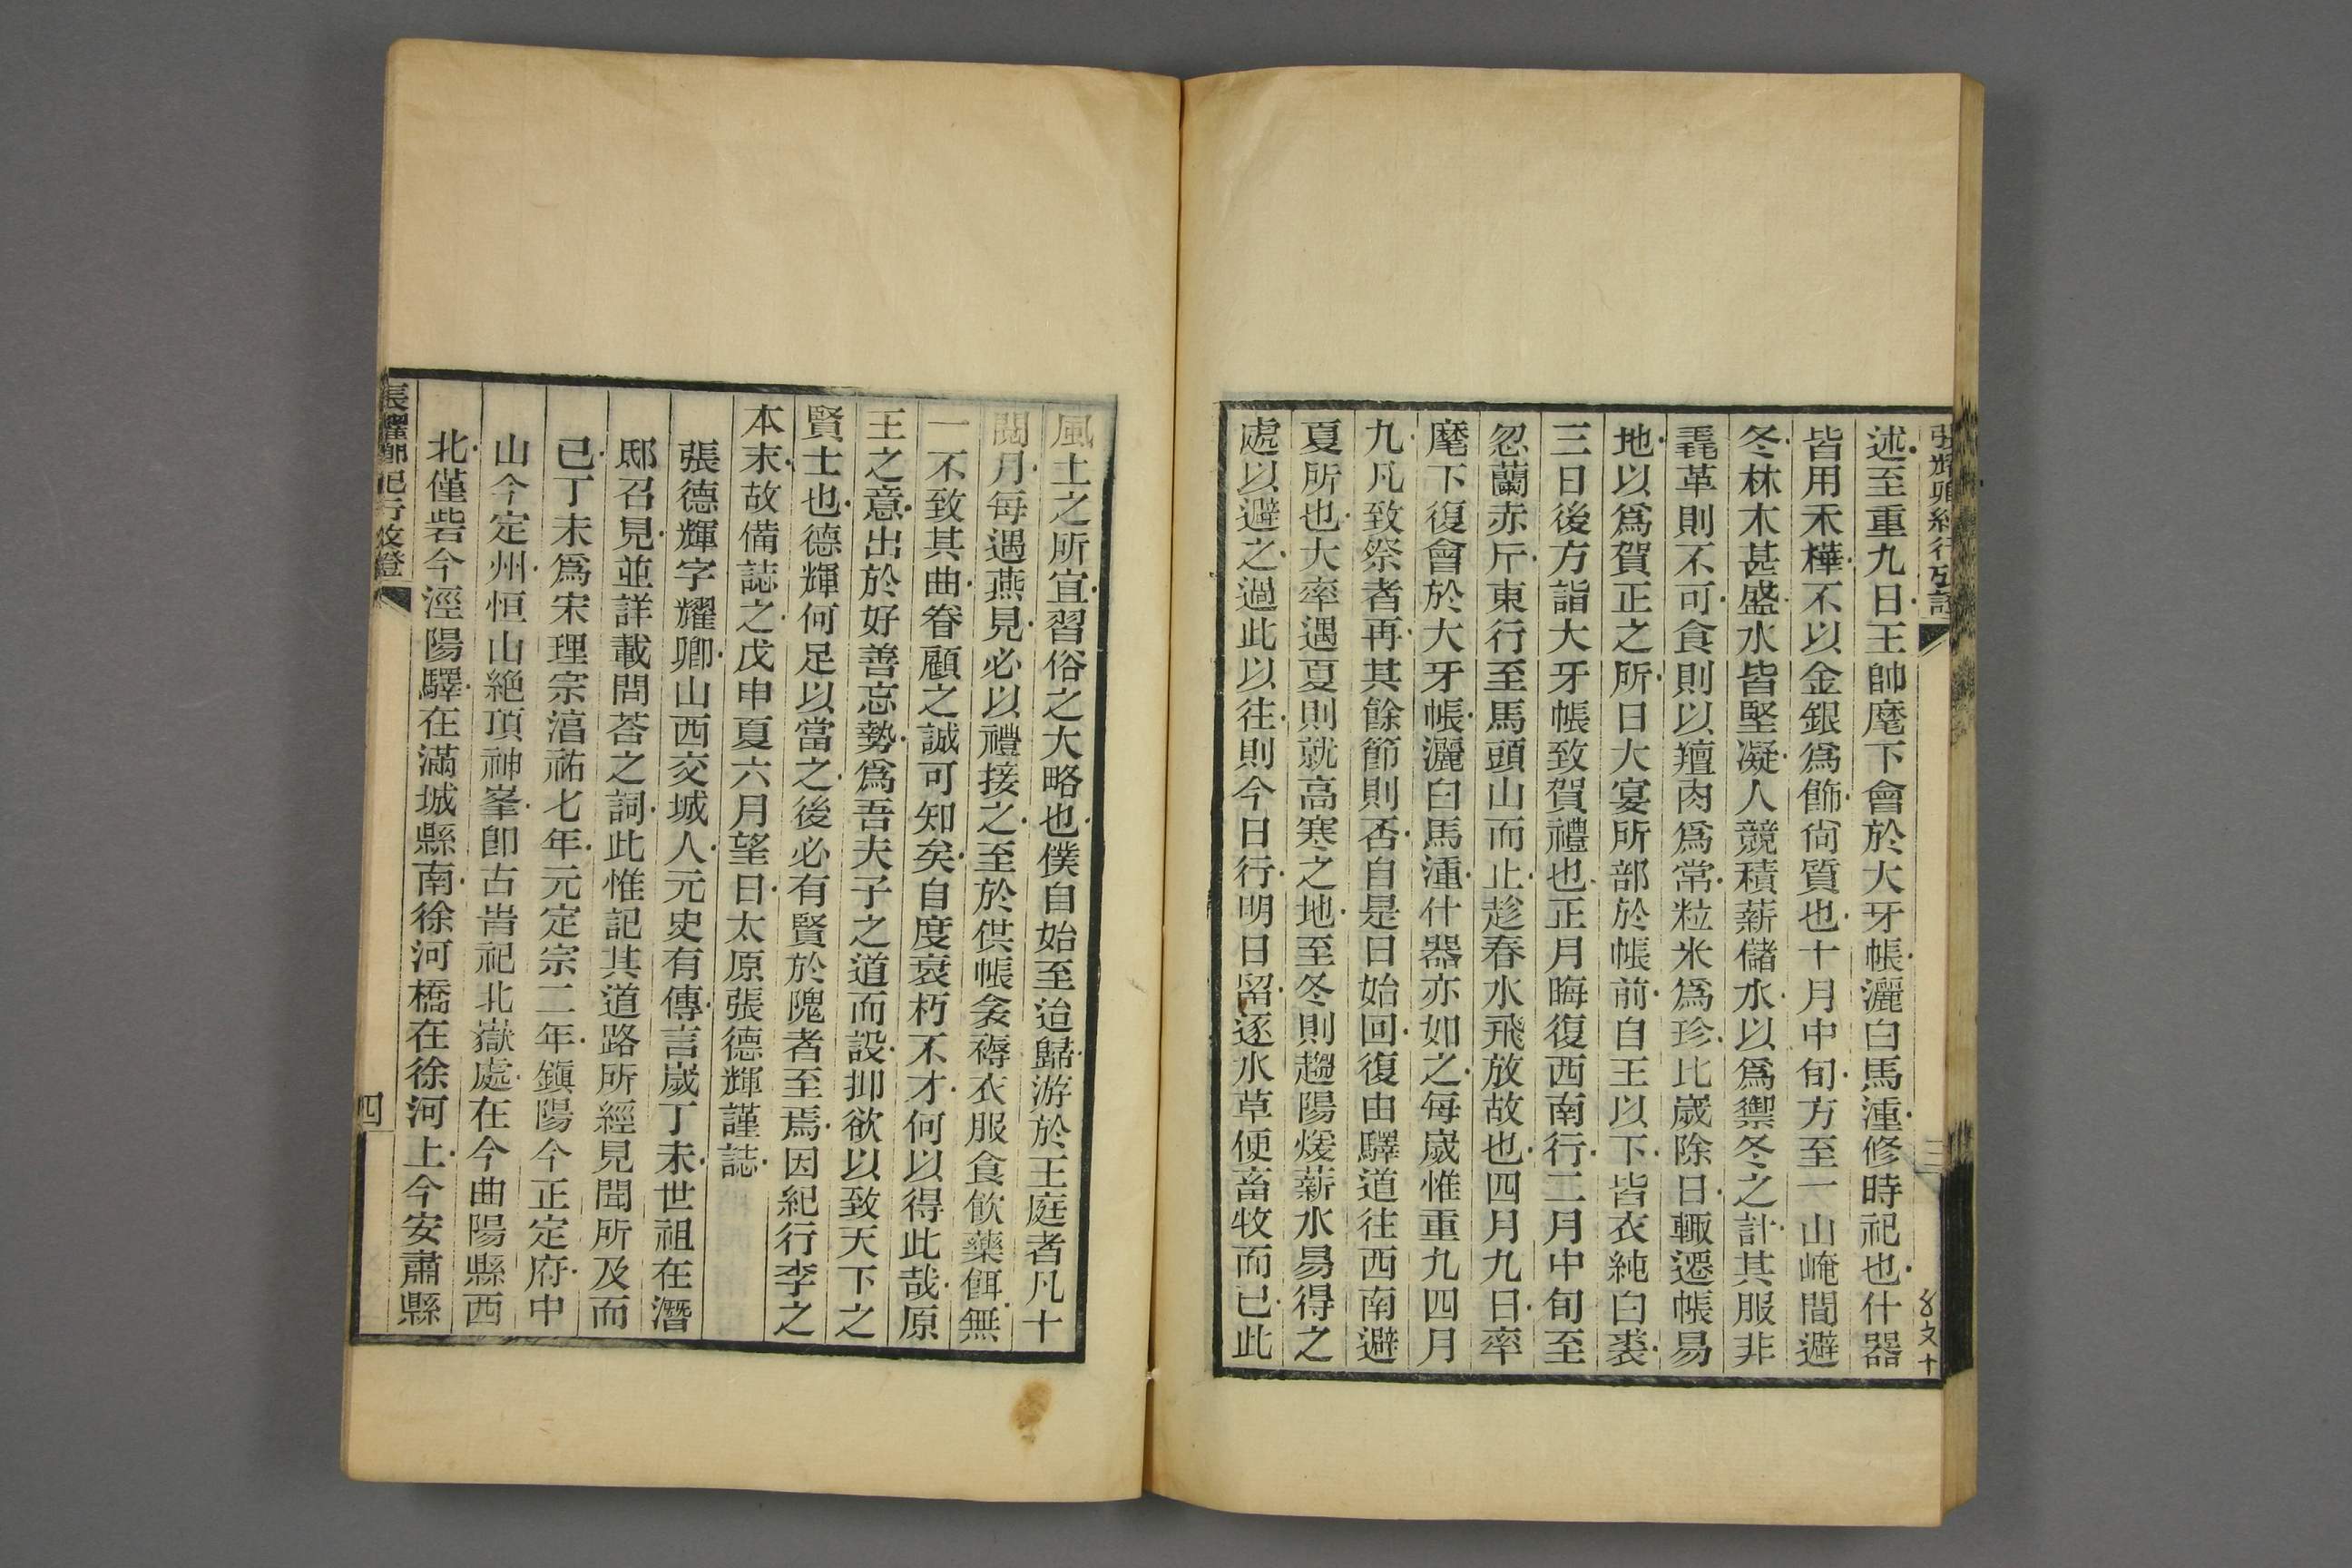 張耀卿紀行攷證
三
述至重九日王帥麾下會於大牙帳灑白馬湩修時祀也什器
皆用禾樺不以金銀爲飾尙質也十月中旬方至一山崦間避
冬林木甚盛水皆堅凝人競積薪儲水以爲禦冬之計其服非
毳革則不可食則以羶肉爲常粒米爲珍比歲除日輒遷帳易
地以爲賀正之所日大宴所部於帳前自王以下皆衣純白裘
三日後方詣大牙帳致賀禮也正月晦復西南行二月中旬至
忽蘭赤斤東行至馬頭山而止趁春水飛放故也四月九日率
麾下復會於大牙帳灑白馬湩什器亦如之每歲惟重九四月
九凡致祭者再其餘節則否自是日始回復由驛道往西南避
夏所也大率遇夏則就高寒之地至冬則趨陽煖薪水易得之
處以避之過此以往則今日行明日留逐水草便畜牧而已此
風土之所宜習俗之大略也僕自始至迨歸游於王庭者凡十
閱月每遇燕見必以禮接之至於供帳衾褥衣服食飲藥餌無
一不致其曲眷顧之誠可知矣自度衰朽不才何以得此哉原
王之意出於好善忘勢爲吾夫子之道而設抑欲以致天下之
賢士也德輝何足以當之後必有賢於隗者至焉因紀行李之
本末故備誌之戊申夏六月望日太原張德輝謹誌
張德輝字耀卿山西交城人元史有傳言歲丁未世祖在潛
邸召見並詳載問荅之詞此惟記其道路所經見聞所及而
已丁未爲宋理宗湻祐七年元定宗二年鎮陽今正定府中
山今定州恒山絶頂神峯卽古峕祀北嶽處在今曲陽縣西
北僅砦今涇陽驛在滿城縣南徐河橋在徐河上今安肅縣
張耀卿紀行攷證
四